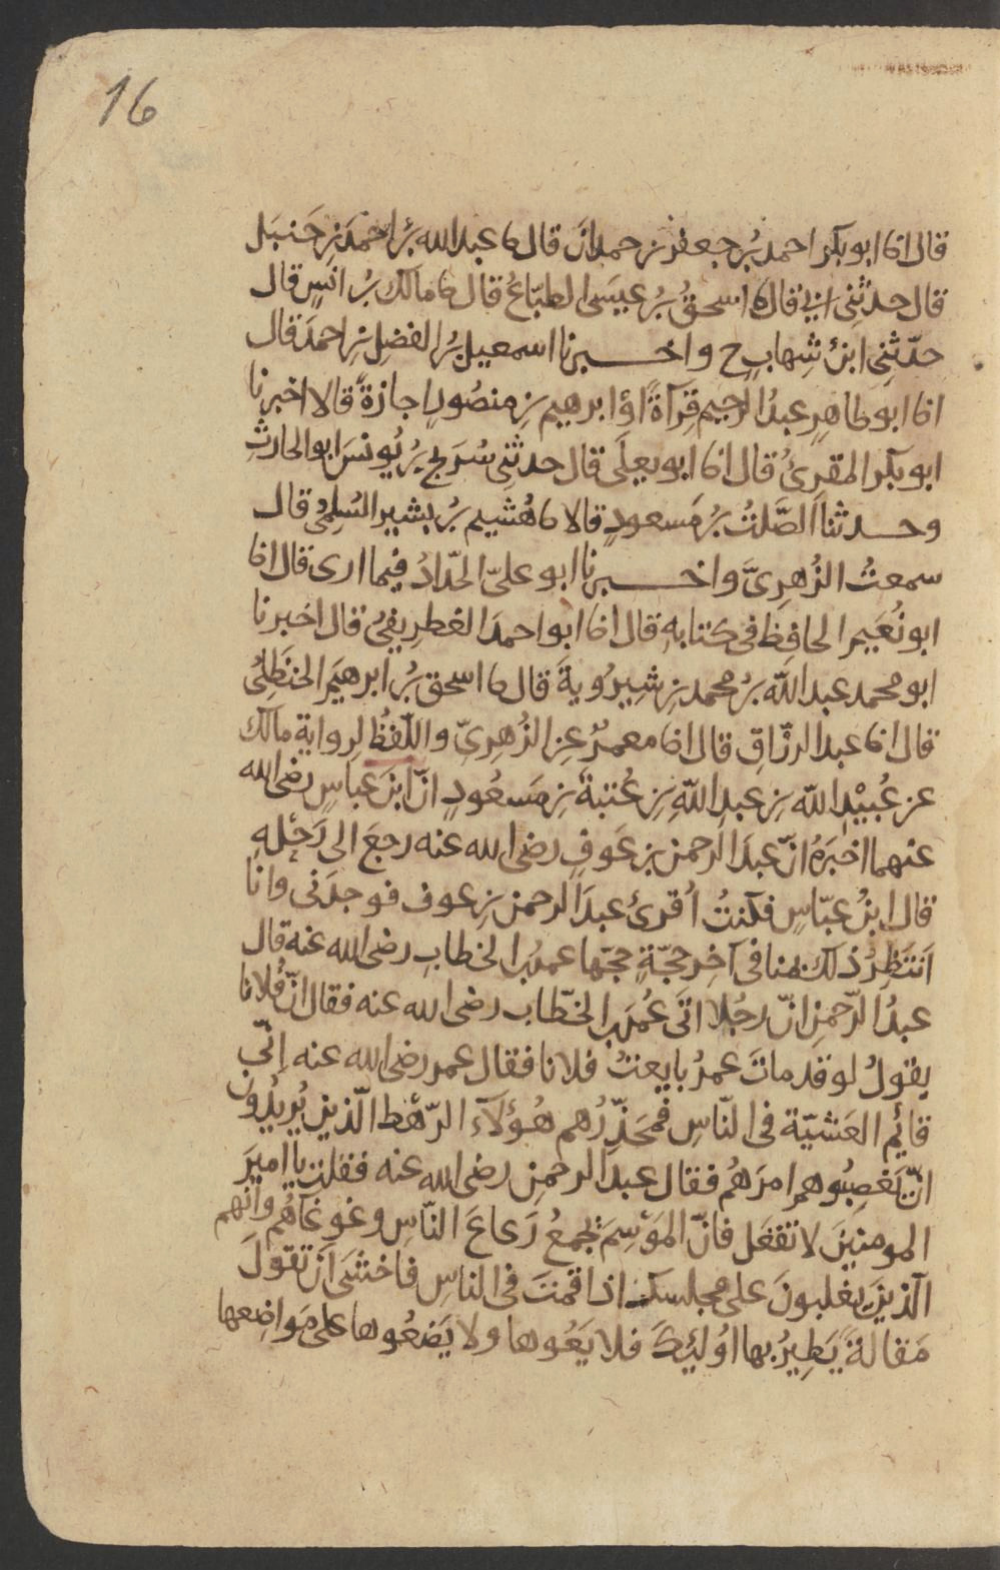 16
قال انا ابو بكر احمد بن جعفر بن حمدان قال نا عبد الله بن احمد بن حنبل
قال حدثني ابي قال نا اسحق بن عيسى الطبّاع قال نا مالك بن انس قال
حدّثني ابن شهاب ح واخبرنا اسمعيل بن الفضل بن احمد قال
انا ابو طاهر عبد الرحيم قرآةً او ابرهيم بن منصور اجازةً قالا اخبرنا
ابو بكر المقرئ قال انا ابو يعلى قال حدثني سريج بن يونس ابو الحارث
وحدثنا الصّلت بن مسعود قالا نا هشيم بن بشير السّلمي قال
سمعت الزهريّ واخبرنا ابو علىّ الحدّاد فيما ارى قال انا
ابو نعيم الحافظ في كتابه قال انا ابو احمد الغطريفي قال اخبرنا
ابو محمد عبد الله بن محمد بن شيرويه قال نا اسحق بن ابرهيم الحنظلي
قال انا عبد الرزّاق قال انا معمر عن الزهريّ واللّفظ لرواية مالك
عن عُبَيْد الله بن عبد الله بن عتبة بن مسعود انّ ابن عباس رضى الله
عنهما اخبره انّ عبد الرحمن بن عوف رضى الله عنه رجع الى رحله
قال ابن عبّاس فكنتُ اُقرئ عبد الرحمن بن عوف فوجدنى وانا
انتظرُ ذلك بمنا في آخر حجّةٍ حجّها عمر بن الخطاب رضى الله عنه قال
عبدُ الرّحمن انّ رجُلا اتى عُمر بن الخطّاب رضى الله عنه فقال انّ فُلانا
يقولُ لو قد ماتَ عمرُ بايعتُ فلانا فقال عمر رضى الله عنه انّي
قائم العَشيّة في النّاس فمحذّرُهم هؤلآء الرّهط الّذين يُريدُون
انْ يَغصِبُوهم امرَهُم فقال عبد الرحمن رضى الله عنه فقلت يا امير
المومنينَ لا تفعَل فانّ الموسمَ يجمعُ رَعاعَ النّاس وغوغآهُم وانهم
الّذينَ يغلبونَ على مجلسك اذا قمتَ في الناس فاخشى ان تقول
مَقالةً يَطِيرُ بها اُولئِكَ فلا يَعُوها ولا يَضعُوها على مَواضِعها